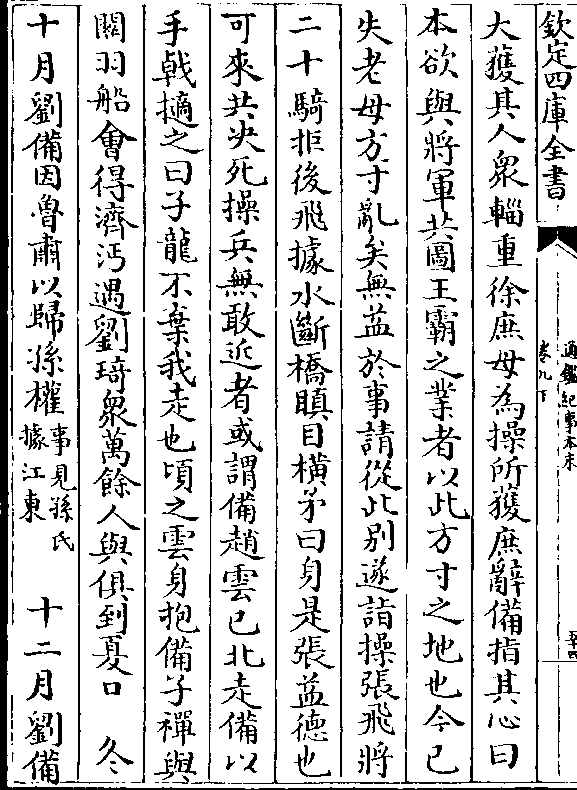 欽定四庫全書
通鑑紀事本末
卷九下
五十四
大獲其人衆輜重徐庶母為操所獲庶辭備指其心曰
本欲與將軍共圖王霸之業者以此方寸之地也今已
失老母方寸亂矣無益於事請從此別遂詣操張飛將
二十騎拒後飛據水斷橋瞋目横矛曰身是張益德也
可來共決死操兵無敢近者或謂備趙雲已北走備以
手戟擿之曰子龍不棄我走也頃之雲身抱備子禪與
關羽船會得濟沔遇劉琦衆萬餘人與俱到夏口　冬
十月劉備因魯肅以歸孫權事見孫氏據江東　十二月劉備